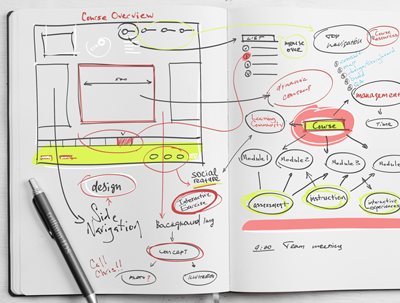 Course Overview
LIST
mouse
over
TOP
Navigation
Course
Resources
dynamic
content
management
Learning
Community
Course
Time
Module 1
Module 2
Module 3
Module
social
feature
design
Interactive
Exercise
assessment
instruction
interactive
experiences
Side
Navigation
Background img
concept
Call
Chris!!
photo?
illustrated
9:00 Team meeting